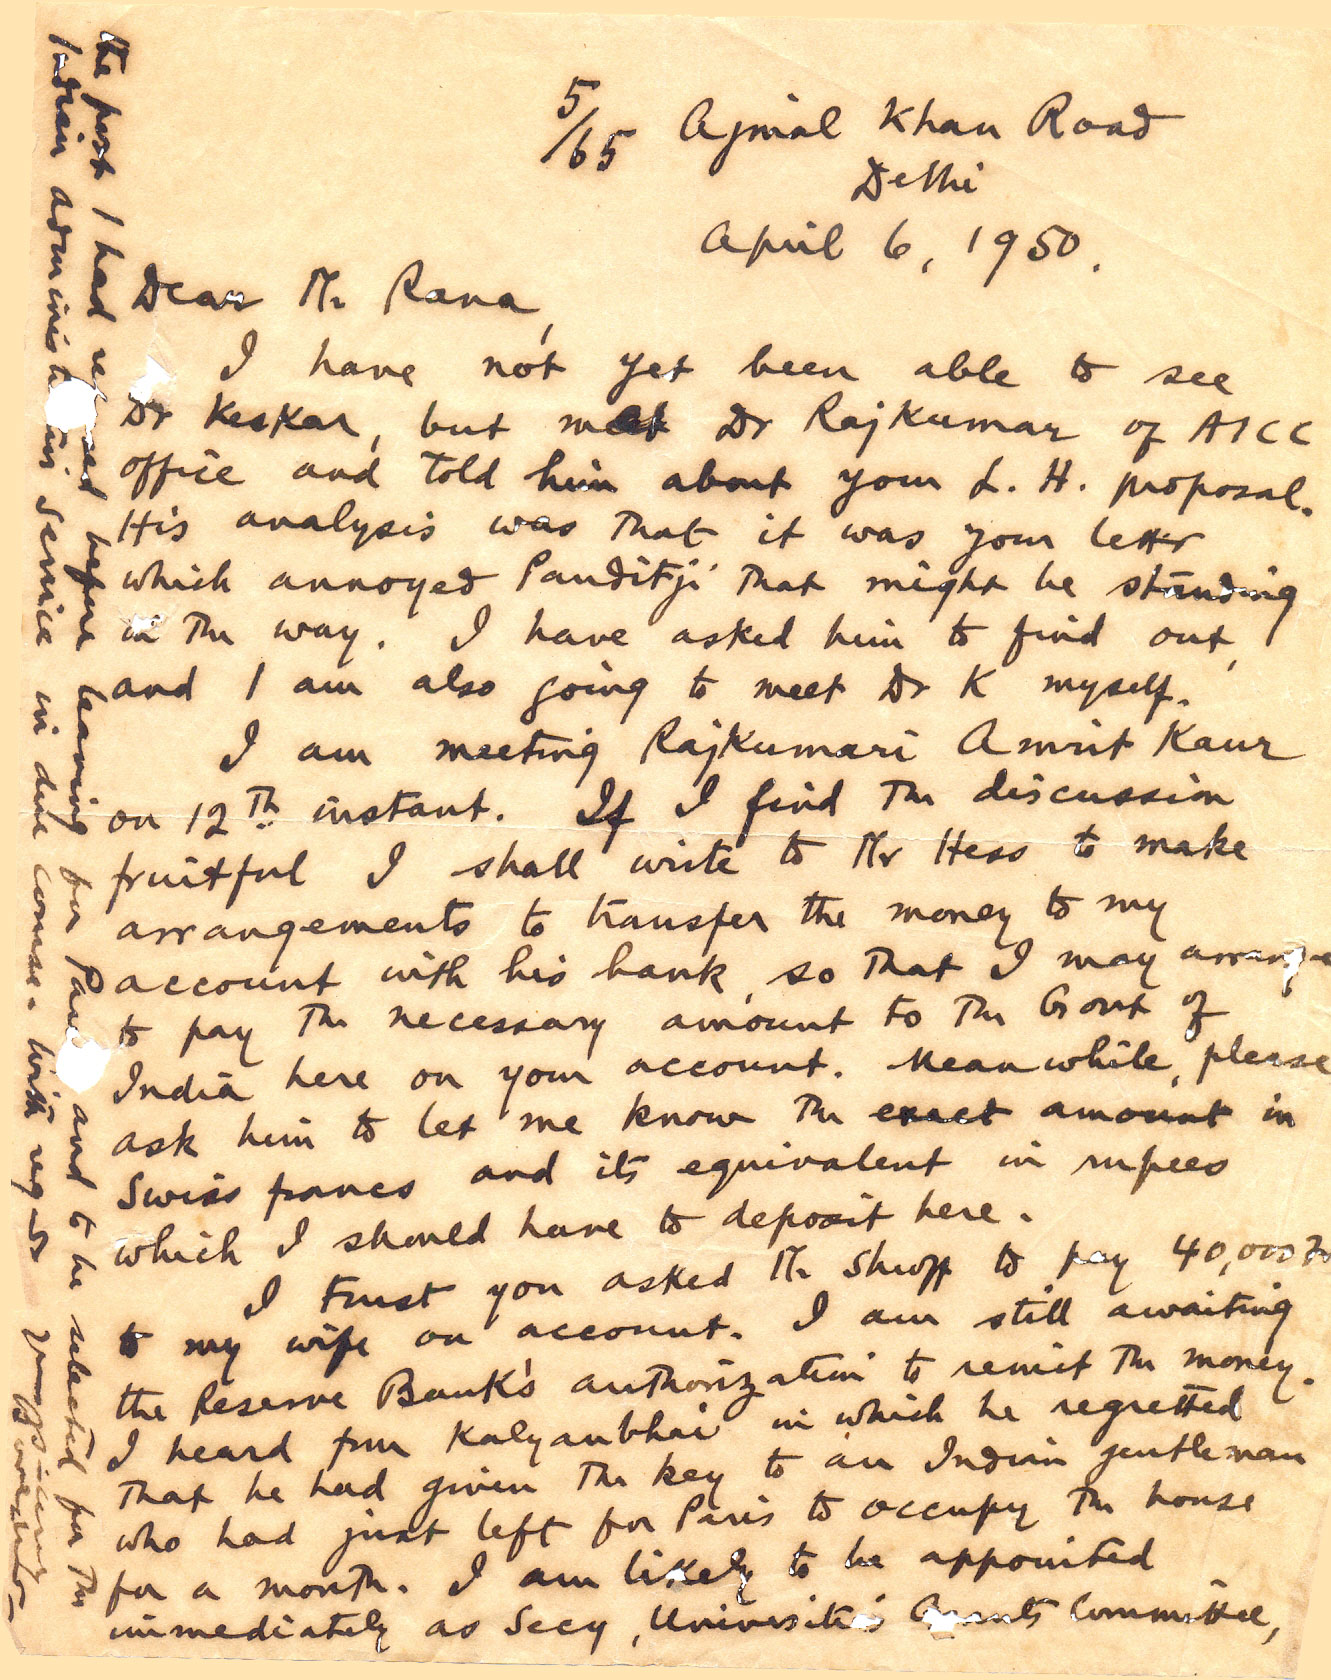 5/65 Ajmal Khan Road
Delhi
April 6, 1950.
Dear Mr Rana,
I have not yet been able to see
Dr Keskar, but met Dr Rajkumar of AICC
office and told him about your L. H. proposal.
His analysis was that it was your letter
which annoyed Panditji that might be standing
in the way. I have asked him to find out,
and I am also going to meet Dr K myself.
I am meeting Rajkumari Amrit Kaur
on 12th instant. If I find the discussion
fruitful I shall write to Mr Hess to make
arrangements to transfer the money to my
account with his bank, so that I may arrange
to pay the necessary amount to the Govt of
India here on your account. Meanwhile, please
ask him to let me know the exact amount in
Swiss francs and its equivalent in rupees
which I should have to deposit here.
I trust you asked Mr Shroff to pay 40,000 Fr
to my wife on account. I am still awaiting
the Reserve Bank's authorization to remit the money.
I heard from Kalyanbhai in which he regretted
that he had given the key to an Indian gentleman
who had just left for Paris to occupy the house
for a month. I am likely to be appointed
immediately as Secy, Universities Grants Committee,
the post I had refused before leaving for Paris and to be selected for the
Indian Administrative Service in due course. With regards
Yours sincerely